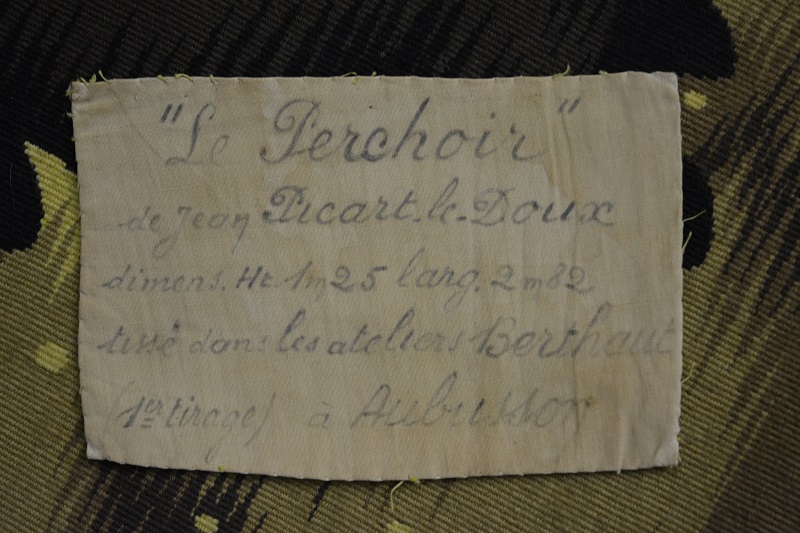 "Le Perchoir"
de Jean Picart-le-Doux
dimens. Ht 1m25 larg. 2m82
tissé dans les ateliers Berthaut
(1er tirage) à Aubusson